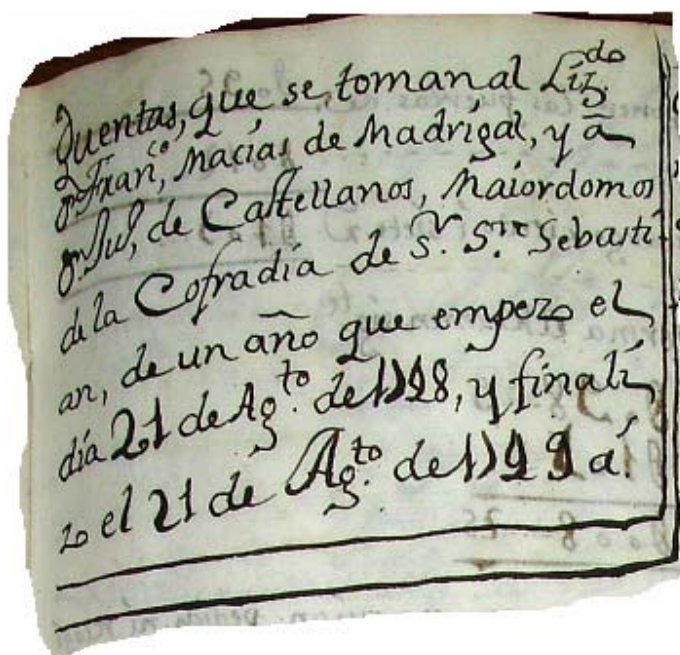 Quentas, que se toman al Liz.do
D.n Fran.co, Macias de Madrigal, y â
D.n Jul, de Castellanos, Maiordomos
de la Cofradia de S.r S.n Sebasti-
an, de un año que empezo el
dia 21 de Ag.to de 1798, y finali
zo el 21 de Ag.to de 1799 á.